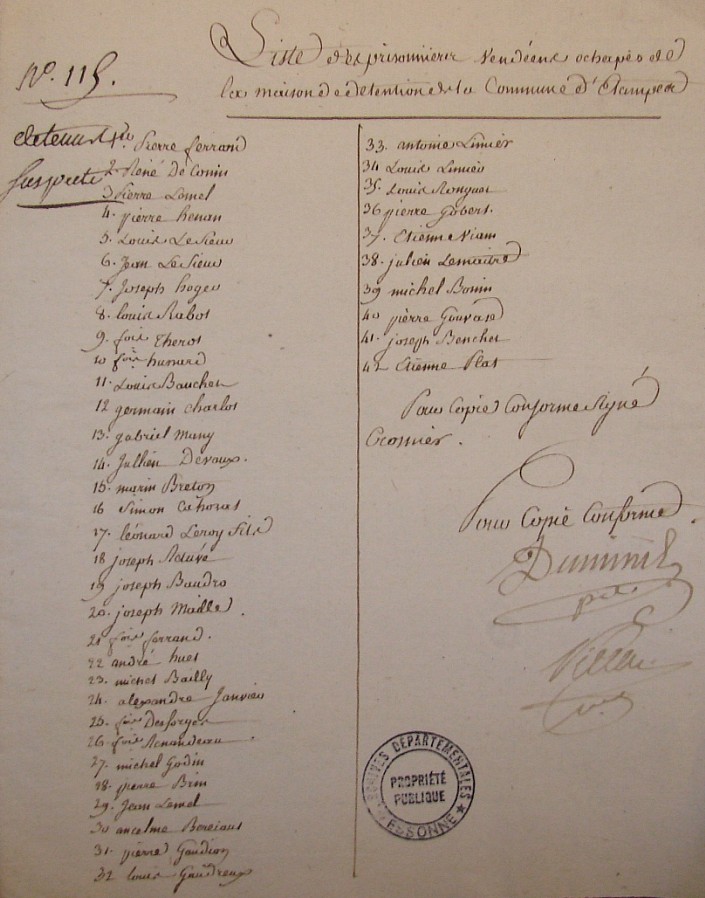 N.º 115.
Liste des prisonniers Vendéens echapés de
la maison de detention de la Commune d'Etampes
detenus
Suspects
1 Pierre ferrand
2 René De Conin
3 Pierre Lemel
4. pierre henan
5. Louis Lesieur
6. Jean Lesieur
7. Joseph hoger
8. louis Rabot
9. fois Therot
10 fois humard
11. Louis Bauchet
12 germain Charlot
13. gabriel Many
14. Jullien Devaux.
15. marin Breton
16 Simon Cahoret
17. léonard Leroy fils
18 joseph Retivé
19 joseph Baudro
20. joseph Maillé.
21 fois ferrand.
22 andré huet
23. michel Bailly
24. alexandre Janvier
25. fois Desforges
26. fois Renaudeau
27. michel Godin
28. pierre Brin
29. Jean Lemel
30 ancelme
31. pierre Gaudion
32 louis Gaudreux
33. antoine Limier
34 Louis Limier
35. Louis Rouguet
36 pierre Gobert.
37. Etienne Viam
38. julien Lemaitre
39 michel Bonin
40 pierre Gouvard
41. joseph Benchet
42 Etienne Plat
Pour Copie Conforme signé
Cronnier.
Pour Copie Conforme
Duminil
pdt
Villa
ARCHIVES DÉPARTEMENTALES
PROPRIÉTÉ
PUBLIQUE
ESSONNE